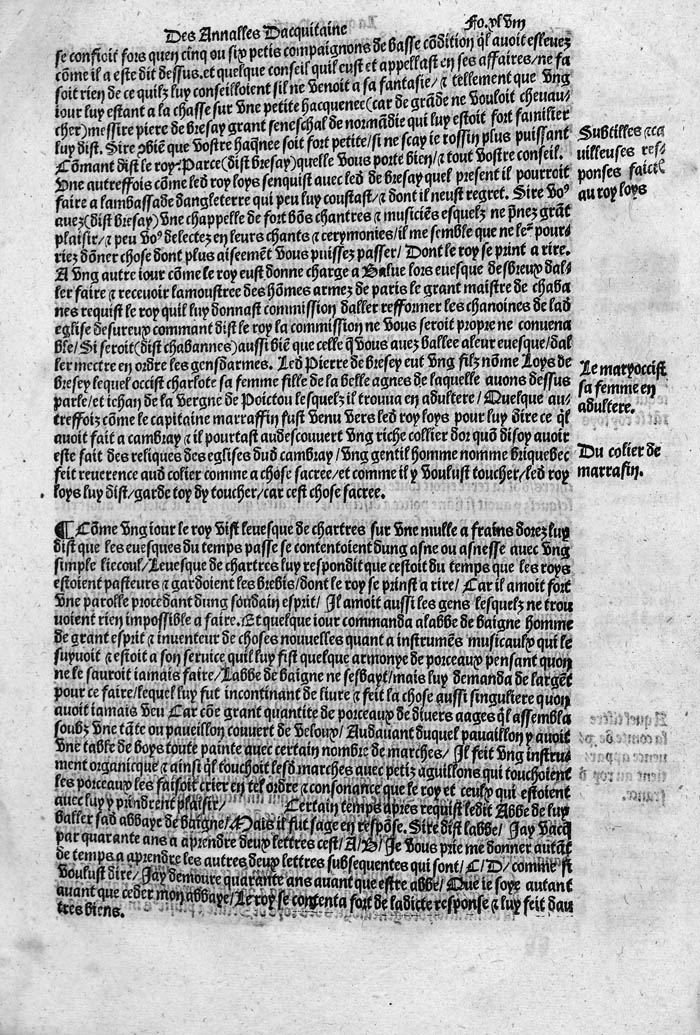 Des Annalles Dacquitaine
Fo. xlviii
se confioit fors quen cinq ou six petis compaignons de basse cōdition q̄l avoit eslevez
cōme il a este dit dessus. et quelque conseil quil eust et appellast en ses affaires / ne fa
soit rien de ce quilz luy conseilloient sil ne venoit a sa fantasie / ⁊ tellement que vng
iour luy estant a la chasse sur vne petite hacquenee (car de grāde ne vouloit chevau⸗
cher) messire piere de bresay grant seneschal de normādie qui luy estoit fort familier
luy dist. Sire ↄbiē que vostre haq̄nee soit fort petite / si ne scay ie rossin plus puissant
Cōmant dist le roy. Parce (dist bresay) quelle vous porte bien / ⁊ tout vostre conseil.
Vne autreffois cōme led roy loys senquist avec led de bresay quel present il pourroit
faire a lambassade dangleterre qui peu luy coustast / ⁊ dont il neust regret. Sire voꝰ
avez (dist bresay) vne chappelle de fort bōs chantres ⁊ musiciēs esquelz ne p̄nez grāt
plaisir / ⁊ peu voꝰ delectez en leurs chants ⁊ cerymonies / il me semble que ne le² pour⸗
riez dōner chose dont plus aiseemēt vous puissez passer / Dont le roy se print a rire.
A vng autre iour cōme le roy eust donne charge a Balue lors evesque desvreux dal⸗
ler faire ⁊ recevoir lamoustree des hōmes armez de paris le grant maistre de chaba
nes requist le roy quil luy donnast commission daller refformer les chanoines de lad
eglise desureux commant dist le roy la commission ne vous seroit propre ne convena
ble / Si seroit (dist chabannes) aussi biē que celle q̄ vous avez ballee aleur evesque / dal
ler mectre en ordre les gensdarmes. Led Pierre de bresey eut vng filz nōme Loys de
bresey lequel occist charlote sa femme fille de la belle agnes de laquelle avons dessus
parle / et iehan de la vergne de Poictou lesquelz il trouva en adultere / Quelque au⸗
treffoiz cōme le capitaine marraffin fust venu vers led roy loys pour luy dire ce q̄l
avoit fait a cambray ⁊ il pourtast audescouvert vng riche collier dor quō disoy avoir
este fait des reliques des eglises dud cambray / vng gentil homme nomme briquebec
feit reverence aud colier comme a chose sacree / et comme il y voulust toucher / led roy
loys luy dist / garde toy dy toucher / car cest chose sacree.
Subtilles ⁊ ca
uilleuses res⸗
ponses faict
au roy loys
Le mary occist
sa femme en
adultere.
Du colier de
marrafin.
¶ Cōme vng iour le roy vist levesque de chartres sur vne mulle a frains dorez luy
dist que les evesques du temps passe se contentoient dung asne ou asnesse avec vng
simple liecoul / Levesque de chartres luy respondit que cestoit du temps que les roys
estoient pasteurs ⁊ gardoient les brebis / dont le roy se prinst a rire / Car il amoit fort
vne parolle procedant dung soudain esprit / Il amoit aussi les gens lesquelz ne trou
voient rien impossible a faire. Et quelque iour commanda alabbe de baigne homme
de grant esprit ⁊ inventeur de choses nouvelles quant a instrumēs musicaulx qui le
suyuoit ⁊ estoit a son service quil luy fist quelque armonye de porceaux pensant quon
ne le sauroit iamais faire / Labbe de baigne ne sesbayt / mais luy demanda de largēt
pour ce faire / lequel luy fut incontinant de livre ⁊ feit la chose aussi singuliere quon
avoit iamais veu Car cōe grant quantite de porceaux de divers aages q̄l assembla
soubz vne tāte ou paveillon couvert de veloux / Audavant duquel pavaillon y avoit
vne table de boys toute painte avec certain nombre de marches / Il feit vng instru⸗
ment organicque ⁊ ainsi q̄l touchoit lesd marches avec petiz aguillons qui touchoient
les porceaux les faisoit crier en tel ordre ⁊ consonance que le roy et ceulx qui estoient
avec luy y prindrent plaisir / Certain temps apres requist ledit Abbe de luy
baller sad abbaye de baigne / Mais il fut sage en respōse. Sire dist labbe / Jay vacq
par quarante ans a aprendre deux lettres cest / A / B / Je vous prie me donner autāt
de temps a aprendre les autres deux lettres subsequentes qui sont / C / D / comme si
voulust dire / Jay demoure quarante ans auant que estre abbe / Que ie soye autant
auant que ceder mon abbaye / Le roy se contenta fort de ladicte response ⁊ luy feit dau
tres biens.